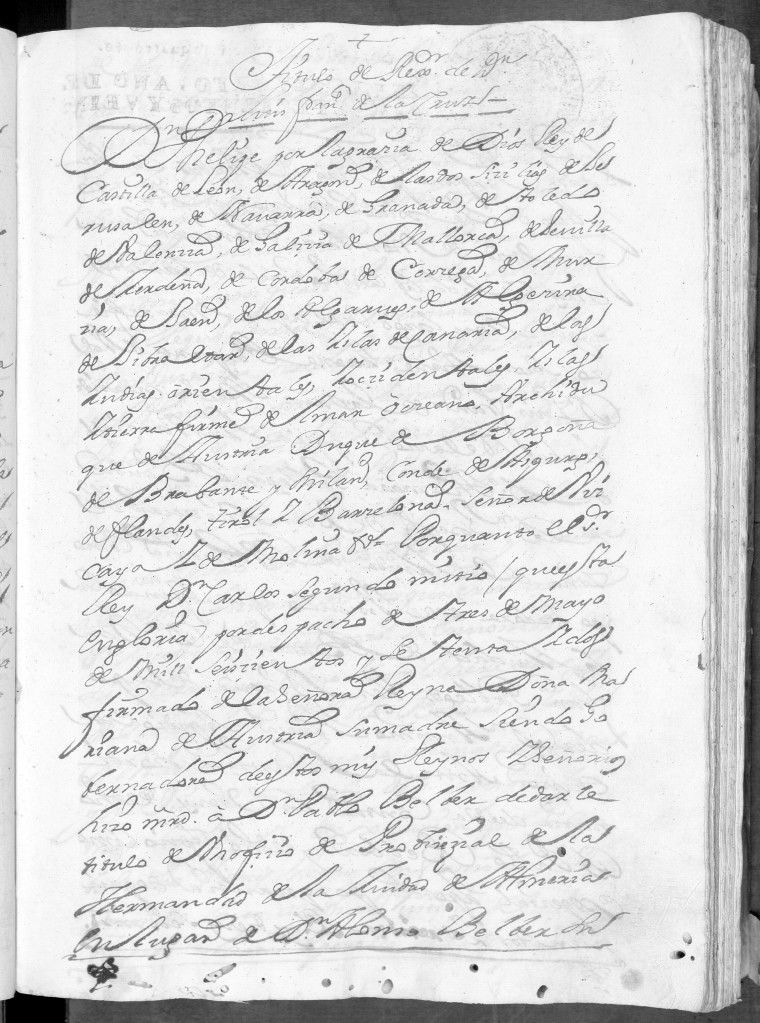 +
Titulo de Rexr. de Dn
Dn Juan de la Cruz
Dn Phelipe por la grazia de Dios Rey de
Castilla de Leon, de Aragon, de las dos Sicilias de Je
rusalen, de Navarra, de Granada, de Toledo
de Valencia, de Galizia de Mallorca, de Sevilla
de Zerdeña, de Cordoba de Corzega, de Mur
zia, de Jaen, de los Algarves, de Algezira
de Gibraltar, de las Yslas de Canaria, de las
Yndias orientales, Yoccidentales, Yslas
Ytierra firme de el mar oceano, Archidu
que de Austria Duque de Borgoña
de Brabante y Milan, Conde de Aspurg,
de Flandes, tirol Y Barzelona, Señor de Viz
caya Y de Molina &t. Porquanto el Sr.
Rey Dn Carlos Segundo mi tio (que esta
en gloria) por despacho de tres de Mayo
de mill seiscientos y setenta Y dos
firmado de la Señora Reyna Doña Ma
riana de Austria su madre siendo Go
bernadora de estos mis Reynos Y Señorios
hizo mrd. à Dn Pablo Belber de darle
titulo de Un ofizio de Probinzial de la
Hermandad de la Ziudad de Almeria
en lugar de Dn Alonso Belber su